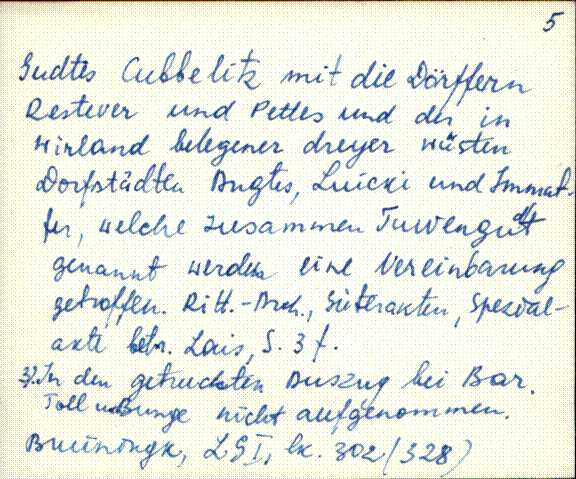 5
Gudtes Cubbelitz mit die Dörffern
Restever und Pettes und der in
Wirland belegener dreyer wüsten
Dorfstädten Angtes, Luicki und Immat-
fer, welche zusammen Tuvengutt
genannt werden eine Vereinbarung
getroffen. Ritt.-Arch., Güterakten, Spezial-
akte betr. Lais, S. 3 f.
3). In den getruckten Auszug bei Bar.
Toll u. Bunge nicht aufgenommen.
Bruiningk, LGI, lk. 302 (328)